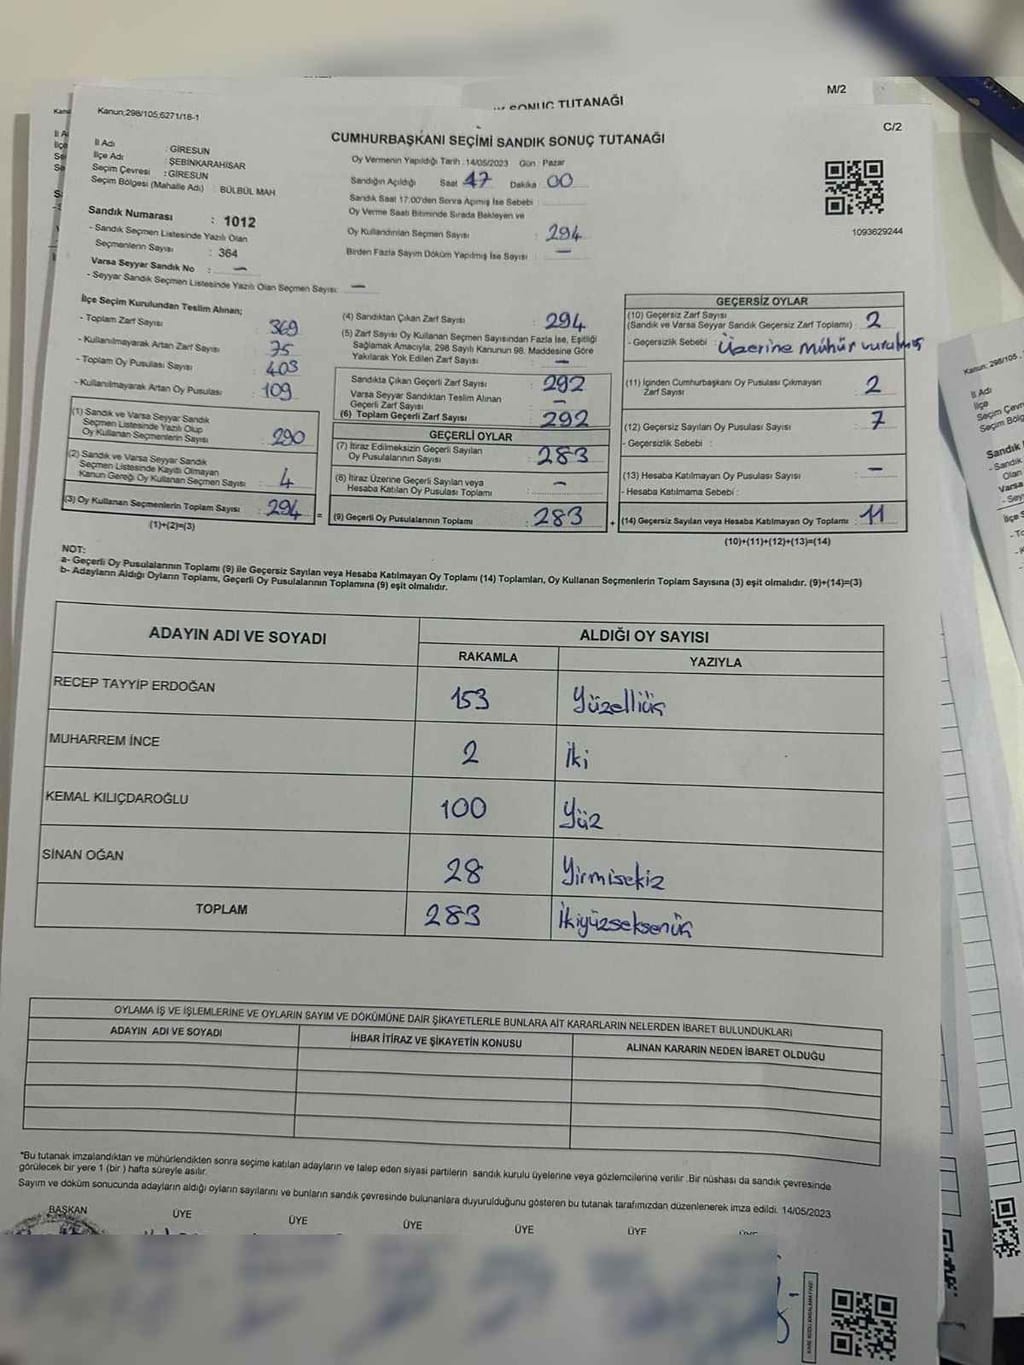 M/2
SONUÇ TUTANAĞI
Kanun;298/105;6271/18-1
C/2
CUMHURBAŞKANI SEÇİMİ SANDIK SONUÇ TUTANAĞI
İl Adı : GİRESUN
İlçe Adı : ŞEBİNKARAHİSAR
Seçim Çevresi : GİRESUN
Seçim Bölgesi (Mahalle Adı) : BÜLBÜL MAH
Sandık Numarası : 1012
- Sandık Seçmen Listesinde Yazılı Olan
Seçmenlerin Sayısı : 364
Varsa Seyyar Sandık No : —
- Seyyar Sandık Seçmen Listesinde Yazılı Olan Seçmen Sayısı: —
Oy Vermenin Yapıldığı Tarih : 14/05/2023 Gün : Pazar
Sandığın Açıldığı Saat 17 Dakika 00
Sandık Saat 17:00'den Sonra Açılmış İse Sebebi :
Oy Verme Saati Bitiminde Sırada Bekleyen ve
Oy Kullandırılan Seçmen Sayısı : 294
Birden Fazla Sayım Döküm Yapılmış İse Sayısı : —
1093629244
İlçe Seçim Kurulundan Teslim Alınan;
- Toplam Zarf Sayısı : 369
- Kullanılmayarak Artan Zarf Sayısı : 75
- Toplam Oy Pusulası Sayısı : 403
- Kullanılmayarak Artan Oy Pusulası : 109
(1) Sandık ve Varsa Seyyar Sandık
Seçmen Listesinde Yazılı Olup
Oy Kullanan Seçmenlerin Sayısı : 290
(2) Sandık ve Varsa Seyyar Sandık
Seçmen Listesinde Kaydı Olmayan
Kanun Gereği Oy Kullanan Seçmen Sayısı : 4
(3) Oy Kullanan Seçmenlerin Toplam Sayısı : 294
(1)+(2)=(3)
(4) Sandıktan Çıkan Zarf Sayısı : 294
(5) Zarf Sayısı Oy Kullanan Seçmen Sayısından Fazla İse, Eşitliği
Sağlamak Amacıyla, 298 Sayılı Kanunun 98. Maddesine Göre
Yakılarak Yok Edilen Zarf Sayısı : —
Sandıkta Çıkan Geçerli Zarf Sayısı : 292
Varsa Seyyar Sandıktan Teslim Alınan
Geçerli Zarf Sayısı : —
(6) Toplam Geçerli Zarf Sayısı : 292
GEÇERLİ OYLAR
(7) İtiraz Edilmeksizin Geçerli Sayılan
Oy Pusulalarının Sayısı : 283
(8) İtiraz Üzerine Geçerli Sayılan veya
Hesaba Katılan Oy Pusulası Toplamı : —
= (9) Geçerli Oy Pusulalarının Toplamı : 283
GEÇERSİZ OYLAR
(10) Geçersiz Zarf Sayısı
(Sandık ve Varsa Seyyar Sandık Geçersiz Zarf Toplamı) : 2
- Geçersizlik Sebebi : Üzerine mühür vurulmuş
(11) İçinden Cumhurbaşkanı Oy Pusulası Çıkmayan
Zarf Sayısı : 2
(12) Geçersiz Sayılan Oy Pusulası Sayısı : 7
- Geçersizlik Sebebi :
(13) Hesaba Katılmayan Oy Pusulası Sayısı : —
- Hesaba Katılmama Sebebi :
+ (14) Geçersiz Sayılan veya Hesaba Katılmayan Oy Toplamı : 11
(10)+(11)+(12)+(13)=(14)
NOT:
a- Geçerli Oy Pusulalarının Toplamı (9) ile Geçersiz Sayılan veya Hesaba Katılmayan Oy Toplamı (14) Toplamları, Oy Kullanan Seçmenlerin Toplam Sayısına (3) eşit olmalıdır. (9)+(14)=(3)
b- Adayların Aldığı Oyların Toplamı, Geçerli Oy Pusulalarının Toplamına (9) eşit olmalıdır.
ADAYIN ADI VE SOYADI
ALDIĞI OY SAYISI
RAKAMLA YAZIYLA
RECEP TAYYİP ERDOĞAN 153 Yüzelliüç
MUHARREM İNCE 2 İki
KEMAL KILIÇDAROĞLU 100 Yüz
SİNAN OĞAN 28 Yirmisekiz
TOPLAM 283 İkiyüzseksenüç
OYLAMA İŞ VE İŞLEMLERİNE VE OYLARIN SAYIM VE DÖKÜMÜNE DAİR ŞİKAYETLERLE BUNLARA AİT KARARLARIN NELERDEN İBARET BULUNDUKLARI
ADAYIN ADI VE SOYADI İHBAR İTİRAZ VE ŞİKAYETİN KONUSU ALINAN KARARIN NEDEN İBARET OLDUĞU
*Bu tutanak imzalandıktan ve mühürlendikten sonra seçime katılan adayların ve talep eden siyasi partilerin sandık kurulu üyelerine veya gözlemcilerine verilir .Bir nüshası da sandık çevresinde
görülecek bir yere 1 (bir ) hafta süreyle asılır.
Sayım ve döküm sonucunda adayların aldığı oyların sayılarını ve bunların sandık çevresinde bulunanlara duyurulduğunu gösteren bu tutanak tarafımızdan düzenlenerek imza edildi. 14/05/2023
BAŞKAN ÜYE ÜYE ÜYE ÜYE ÜYE ÜYE